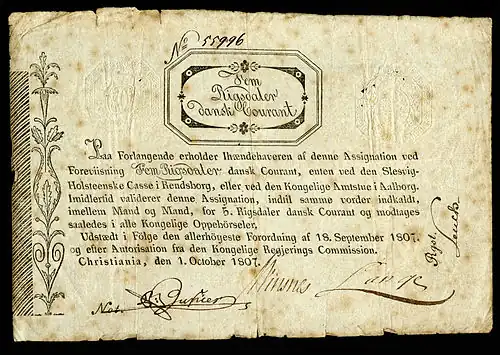 No 55996
Fem
Rigsdaler
dansk Courant
Paa Forlangende erholder Ihændehaveren af denne Assignation ved
Foreviisning Fem Rigsdaler dansk Courant, enten ved den Slesvig-
Holsteenske Casse i Rendsborg, eller ved den Kongelige Amtstue i Aalborg.
Imidlertid validerer denne Assignation, indtil samme vorder indkaldt,
imellem Mand og Mand, for 5. Rigsdaler dansk Courant og modtages
saaledes i alle Kongelige Oppebörseler.
Udstædt i Fölge den allerhöieste Forordning af 18. September 1807.
og efter Autorisation fra den Kongelige Regjerings Commission.
Christiania, den 1. October 1807.
Not.